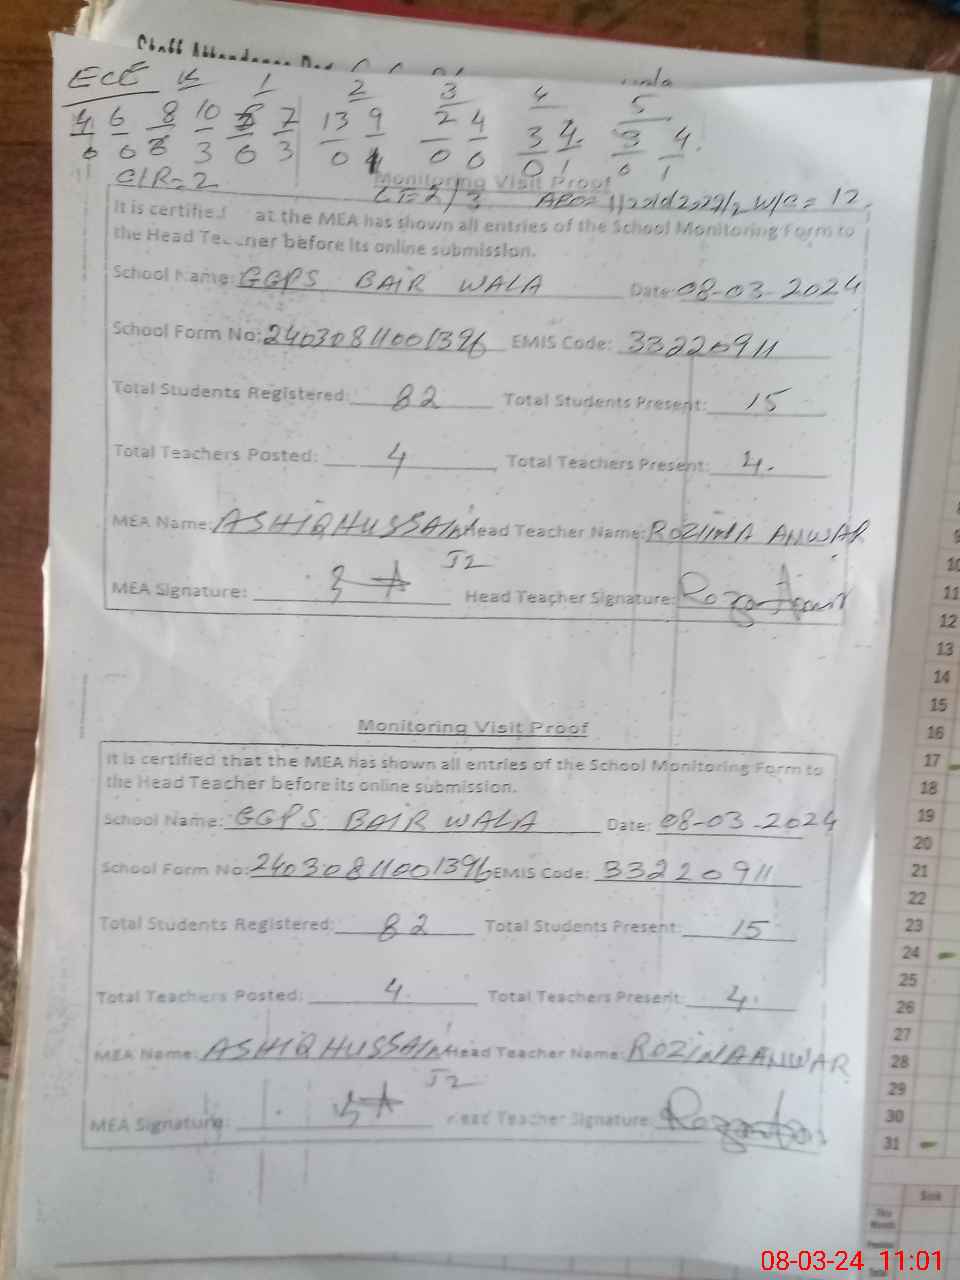 Staff Attendance
ECE K 1 2 3 4 5
4 6 8 10 7 13 9 2 4 3 4 3 4
0 0 3 0 3 0 0 0 0 1 0 1
CIR=2
Monitoring Visit Proof
W/C = 12
It is certified at the MEA has shown all entries of the School Monitoring Form to
the Head Teacher before its online submission.
School Name: GGPS BAIR WALA Date: 08-03-2024
School Form No: 24030811001396 EMIS Code: 33220911
Total Students Registered: 82 Total Students Present: 15
Total Teachers Posted: 4 Total Teachers Present: 4.
MEA Name: ASHIQ HUSSAIN Head Teacher Name: ROZINA ANWAR
J2
MEA Signature: Head Teacher Signature:
Monitoring Visit Proof
It is certified that the MEA has shown all entries of the School Monitoring Form to
the Head Teacher before its online submission.
School Name: GGPS BAIR WALA Date: 08-03-2024
School Form No: 24030811001396 EMIS Code: 33220911
Total Students Registered: 82 Total Students Present: 15
Total Teachers Posted: 4. Total Teachers Present: 4.
MEA Name: ASHIQ HUSSAIN Head Teacher Name: ROZINA ANWAR
J2
MEA Signature: Head Teacher Signature:
9
10
11
12
13
14
15
16
17
18
19
20
21
22
23
24
25
26
27
28
29
30
31
Sick
This
Month
Total
08-03-24 11:01